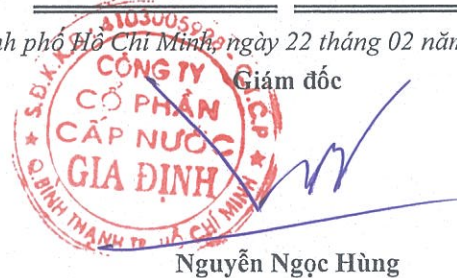 nh phố Hồ Chí Minh, ngày 22 tháng 02 năm
Giám đốc
CÔNG TY
CỔ PHẦN
CẤP NƯỚC
GIA ĐỊNH
Q. BÌNH THẠNH TP. HỒ CHÍ MINH
Nguyễn Ngọc Hùng